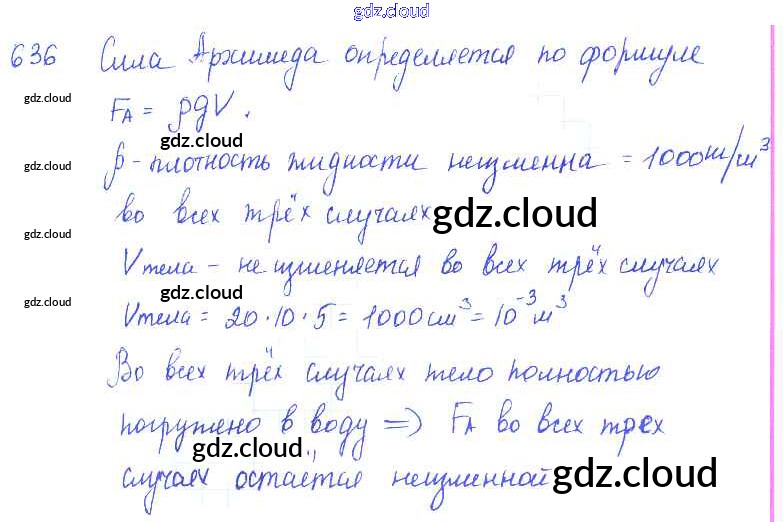 gdz.cloud
636 Сила Архимеда определяется по формуле
gdz.cloud
F_A = ρgV.
gdz.cloud
gdz.cloud
ρ - плотность жидкости неизменна = 1000 кг/м³
во всех трёх случаях
gdz.cloud
gdz.cloud
V тела - не изменяется во всех трёх случаях
gdz.cloud
gdz.cloud
V тела = 20·10·5 = 1000 см³ = 10⁻³ м³
Во всех трёх случаях тело полностью
погружено в воду => F_A во всех трех
gdz.cloud
случаях остаётся неизменной
gdz.cloud